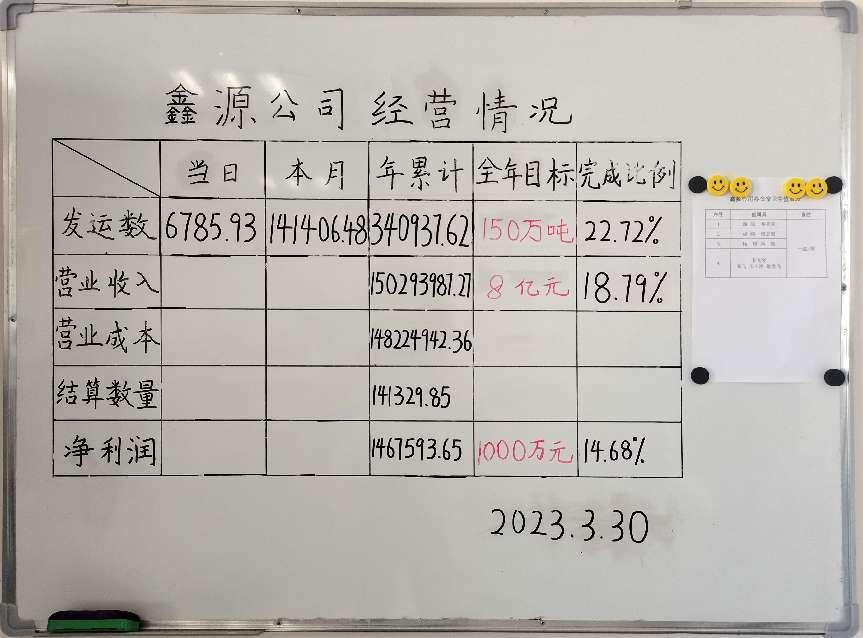 鑫源公司经营情况
当日 本月 年累计 全年目标 完成比例
发运数 6785.93 141406.48 340937.62 150万吨 22.72%
营业收入 150293987.27 8亿元 18.79%
营业成本 148224942.36
结算数量 141329.85
净利润 1467593.65 1000万元 14.68%
2023.3.30